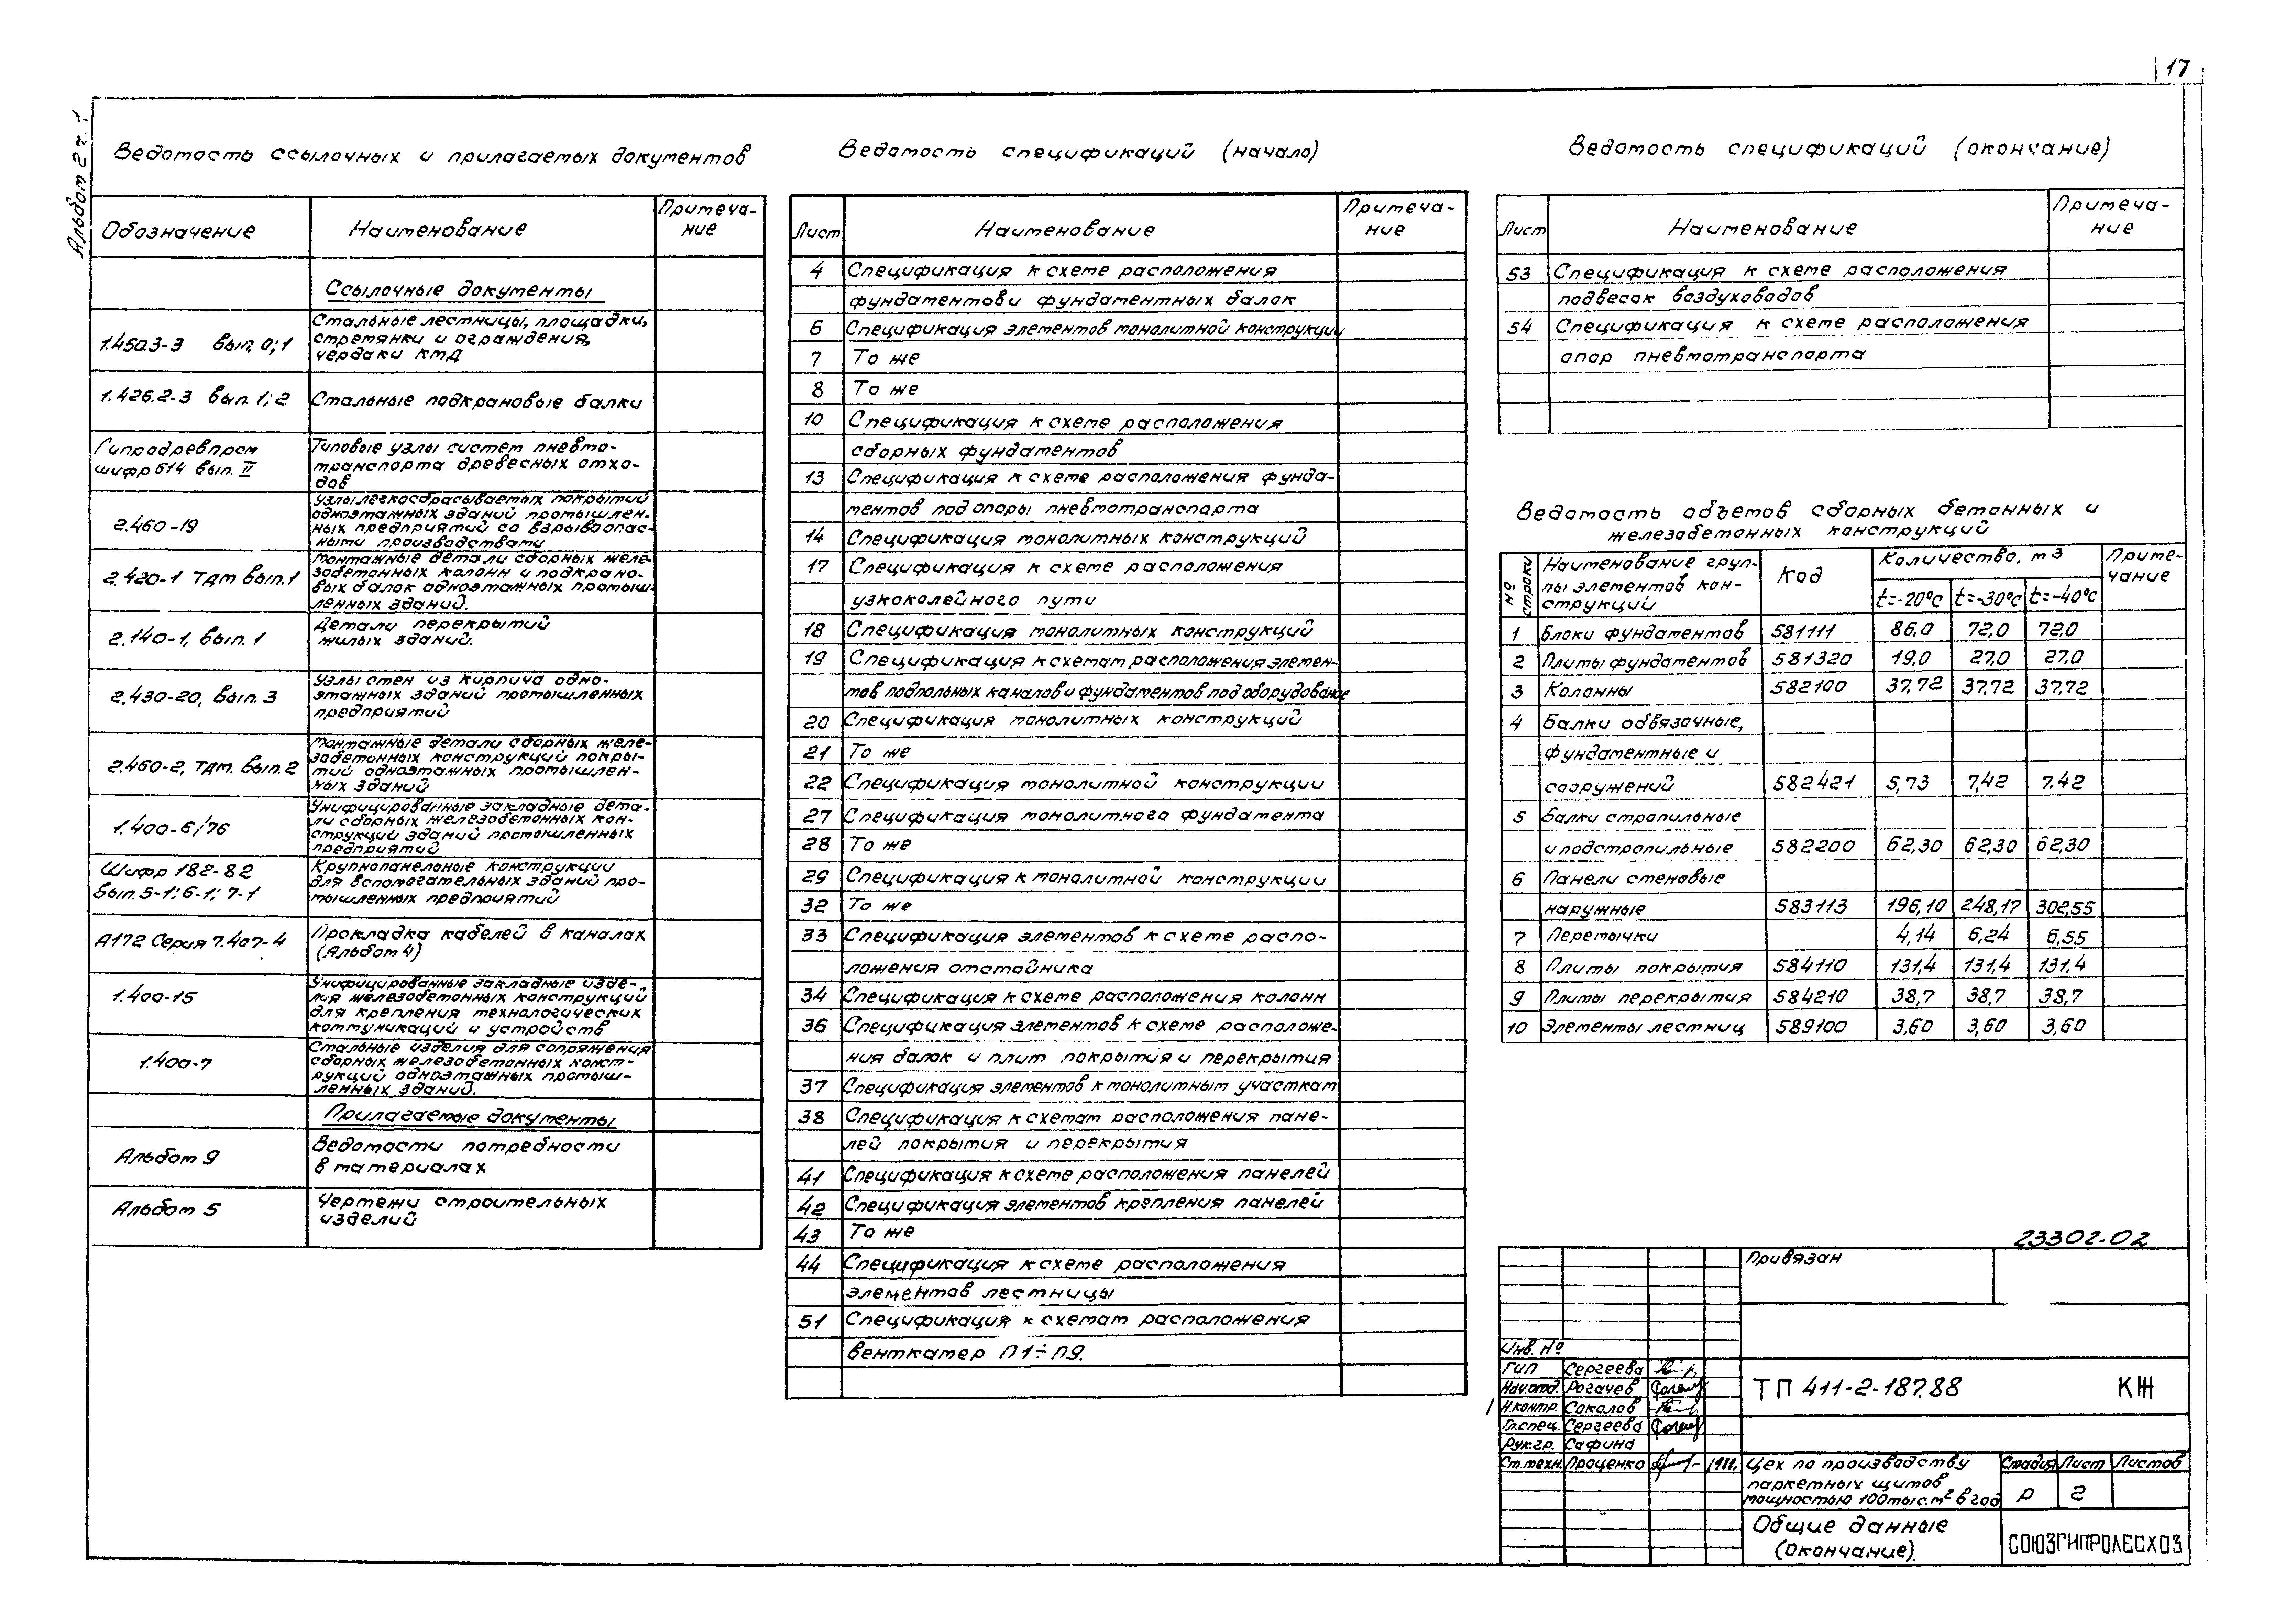 17
Альбом 2 ч. 1
Ведомость ссылочных и прилагаемых документов
Обозначение
Наименование
Примеча-
ние
Ссылочные документы
1.450.3-3 вып. 0;1
Стальные лестницы, площадки,
стремянки и ограждения,
чердаки КМД
1.426.2-3 вып. 1; 2
Стальные подкрановые балки
Гипродревпром
шифр 614 вып. II
Типовые узлы систем пневмо-
транспорта древесных отхо-
дов
2.460-19
Узлы легкосбрасываемых покрытий
одноэтажных зданий промышлен-
ных предприятий со взрывоопас-
ными производствами
2.420-1 ТДМ вып. 1
Монтажные детали сборных желе-
зобетонных колонн и подкрано-
вых балок одноэтажных промыш-
ленных зданий.
2.140-1, вып. 1
Детали перекрытий
жилых зданий.
2.430-20, вып. 3
Узлы стен из кирпича одно-
этажных зданий промышленных
предприятий
2.460-2, ТДМ. вып. 2
Монтажные детали сборных желе-
зобетонных конструкций покры-
тий одноэтажных промышлен-
ных зданий
1.400-6/76
Унифицированные закладные дета-
ли сборных железобетонных кон-
струкций зданий промышленных
предприятий
Шифр 182-82
Вып. 5-1; 6-1; 7-1
Крупнопанельные конструкции
для вспомогательных зданий про-
мышленных предприятий
А172 Серия 7.407-4
Прокладка кабелей в каналах
(Альбом 4)
1.400-15
Унифицированные закладные изде-
лия железобетонных конструкций
для крепления технологических
коммуникаций и устройств
1.400-7
Стальные изделия для сопряжения
сборных железобетонных конст-
рукций одноэтажных промыш-
ленных зданий.
Прилагаемые документы
Альбом 9
Ведомости потребности
в материалах
Альбом 5
Чертежи строительных
изделий
Ведомость спецификаций (начало)
Лист
Наименование
Примеча-
ние
4 Спецификация к схеме расположения
фундаментов и фундаментных балок
6 Спецификация элементов монолитной конструкции
7 То же
8 То же
10 Спецификация к схеме расположения
сборных фундаментов
13 Спецификация к схеме расположения фунда-
ментов под опоры пневмотранспорта
14 Спецификация монолитных конструкций
17 Спецификация к схеме расположения
узкоколейного пути
18 Спецификация монолитных конструкций
19 Спецификация к схемам расположения элемен-
тов подпольных каналов и фундаментов под оборудование
20 Спецификация монолитных конструкций
21 То же
22 Спецификация монолитной конструкции
27 Спецификация монолитного фундамента
28 То же
29 Спецификация к монолитной конструкции
32 То же
33 Спецификация элементов к схеме распо-
ложения отстойника
34 Спецификация к схеме расположения колонн
36 Спецификация элементов к схеме расположе-
ния балок и плит покрытия и перекрытия
37 Спецификация элементов к монолитным участкам
38 Спецификация к схемам расположения пане-
лей покрытия и перекрытия
41 Спецификация к схеме расположения панелей
42 Спецификация элементов крепления панелей
43 То же
44 Спецификация к схеме расположения
элементов лестницы
51 Спецификация к схемам расположения
венткамер П1÷П9.
Ведомость спецификаций (окончание)
Лист
Наименование
Примеча-
ние
53 Спецификация к схеме расположения
подвесок воздуховодов
54 Спецификация к схеме расположения
опор пневмотранспорта
Ведомость объемов сборных бетонных и
железобетонных конструкций
№ строки
Наименование груп-
пы элементов кон-
струкций
Код
Количество, м3
t=-20°с t=-30°с t=-40°с
Приме-
чание
1 Блоки фундаментов 581111 86,0 72,0 72,0
2 Плиты фундаментов 581320 19,0 27,0 27,0
3 Колонны 582100 37,72 37,72 37,72
4 Балки обвязочные,
фундаментные и
сооружений 582421 5,73 7,42 7.42
5 Балки стропильные
и подстропильные 582200 62,30 62,30 62,30
6 Панели стеновые
наружные 583113 196,10 248,17 302,55
7 Перемычки 4,14 6,24 6,55
8 Плиты покрытия 584110 131,4 131,4 131,4
9 Плиты перекрытия 584210 38,7 38,7 38,7
10 Элементы лестниц 589100 3,60 3,60 3,60
23302-02
Привязан
Инв. №
ГИП Сергеева
Нач.отд. Рогачев
Н.контр. Соколов
Гл.спец. Сергеева
Рук.гр. Сафина
Ст.техн. Проценко 1988.
ТП 411-2-187.88 КЖ
Цех по производству
паркетных щитов
мощностью 100тыс.м² в год
Стадия Лист Листов
Р 2
Общие данные
(окончание).
СОЮЗГИПРОЛЕСХОЗ